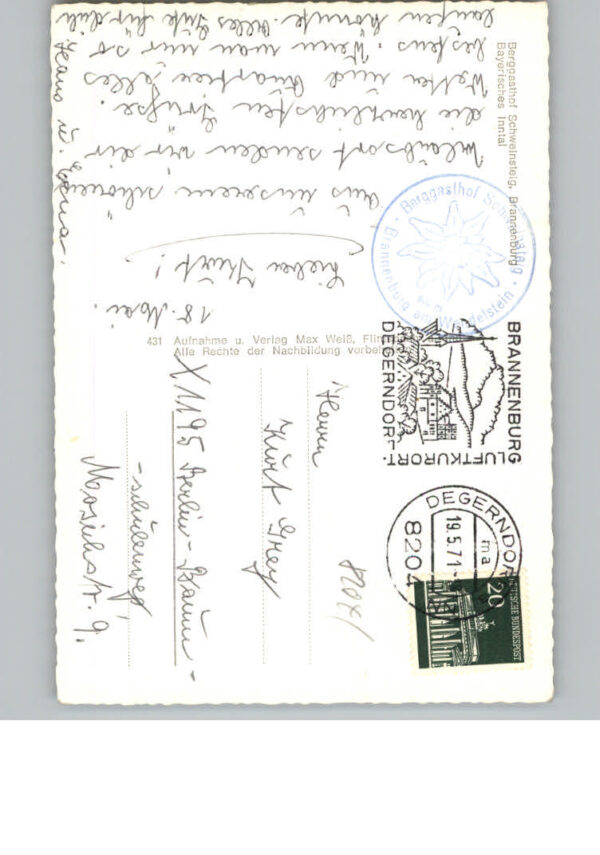 Berggasthof Schweinsteig, Brannenburg
Bayerisches Inntal
18. Mai.
Lieber Kurt!
Aus unserem schönen
Urlaubsort senden wir dir
die herzlichsten Grüße.
Wetter und Quartier alles
bestens. Wenn man nur so
laufen könnte. Alles Gute für dich
Hans u. Erna.
431 Aufnahme u. Verlag Max Weiß,
Alle Rechte der Nachbildung
Berggasthof Schweinsteig
Brannenburg am Wendelstein
BRANNENBURG
DEGERNDORF
LUFTKURORT
DEGERNDORF
19.5.71
8204
20
DEUTSCHE BUNDESPOST
Herrn
Kurt Grey
X 1195 Berlin-Baum-
-schulenweg,
Mosischstr. 9.